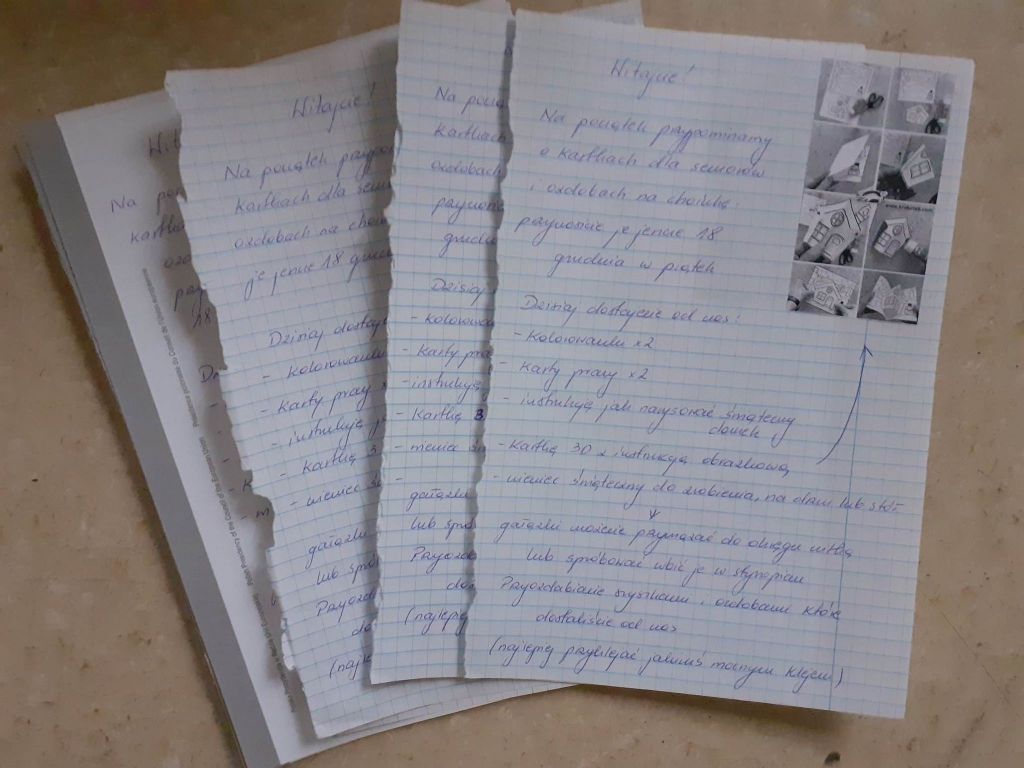 Witajcie!
Na początek przypominamy
o kartkach dla seniorów
i ozdobach na choinkę:
przynosicie je jeszcze 18
grudnia w piątek
Dzisiaj dostajecie od nas:
- kolorowanki x2
- karty pracy x2
- instrukcję jak narysować świąteczny
domek
- kartkę 3D z instrukcją obrazkową
- wieniec świąteczny do zrobienia, na drzwi lub stół
↓
gałązki możecie przymocować do okręgu nitką
lub spróbować wbić je w styropian
Przyozdabiacie szyszkami i ozdobami które
dostaliście od nas
(najlepiej przyklejać jakimś mocnym klejem)
Witajcie!
Na początek przypo
kartkach dla sen
ozdobach na choin
je jeszcze 18 grud
Dzisiaj dostaj
- kolorowanki
- karty pracy x
- instrukcję j
- kartkę 3
- wieniec św
gałązki
lub spró
Przyozd
do
(najle
Na począ
kartkach
ozdobach
przynosi
grudni
Dzisiaj
- kolorowa
- karty pra
- instrukcję
- kartkę 3
- wieniec św
gałązki
lub spró
Przyozda
do
(najlepiej
Wit
Na po
kartka
18